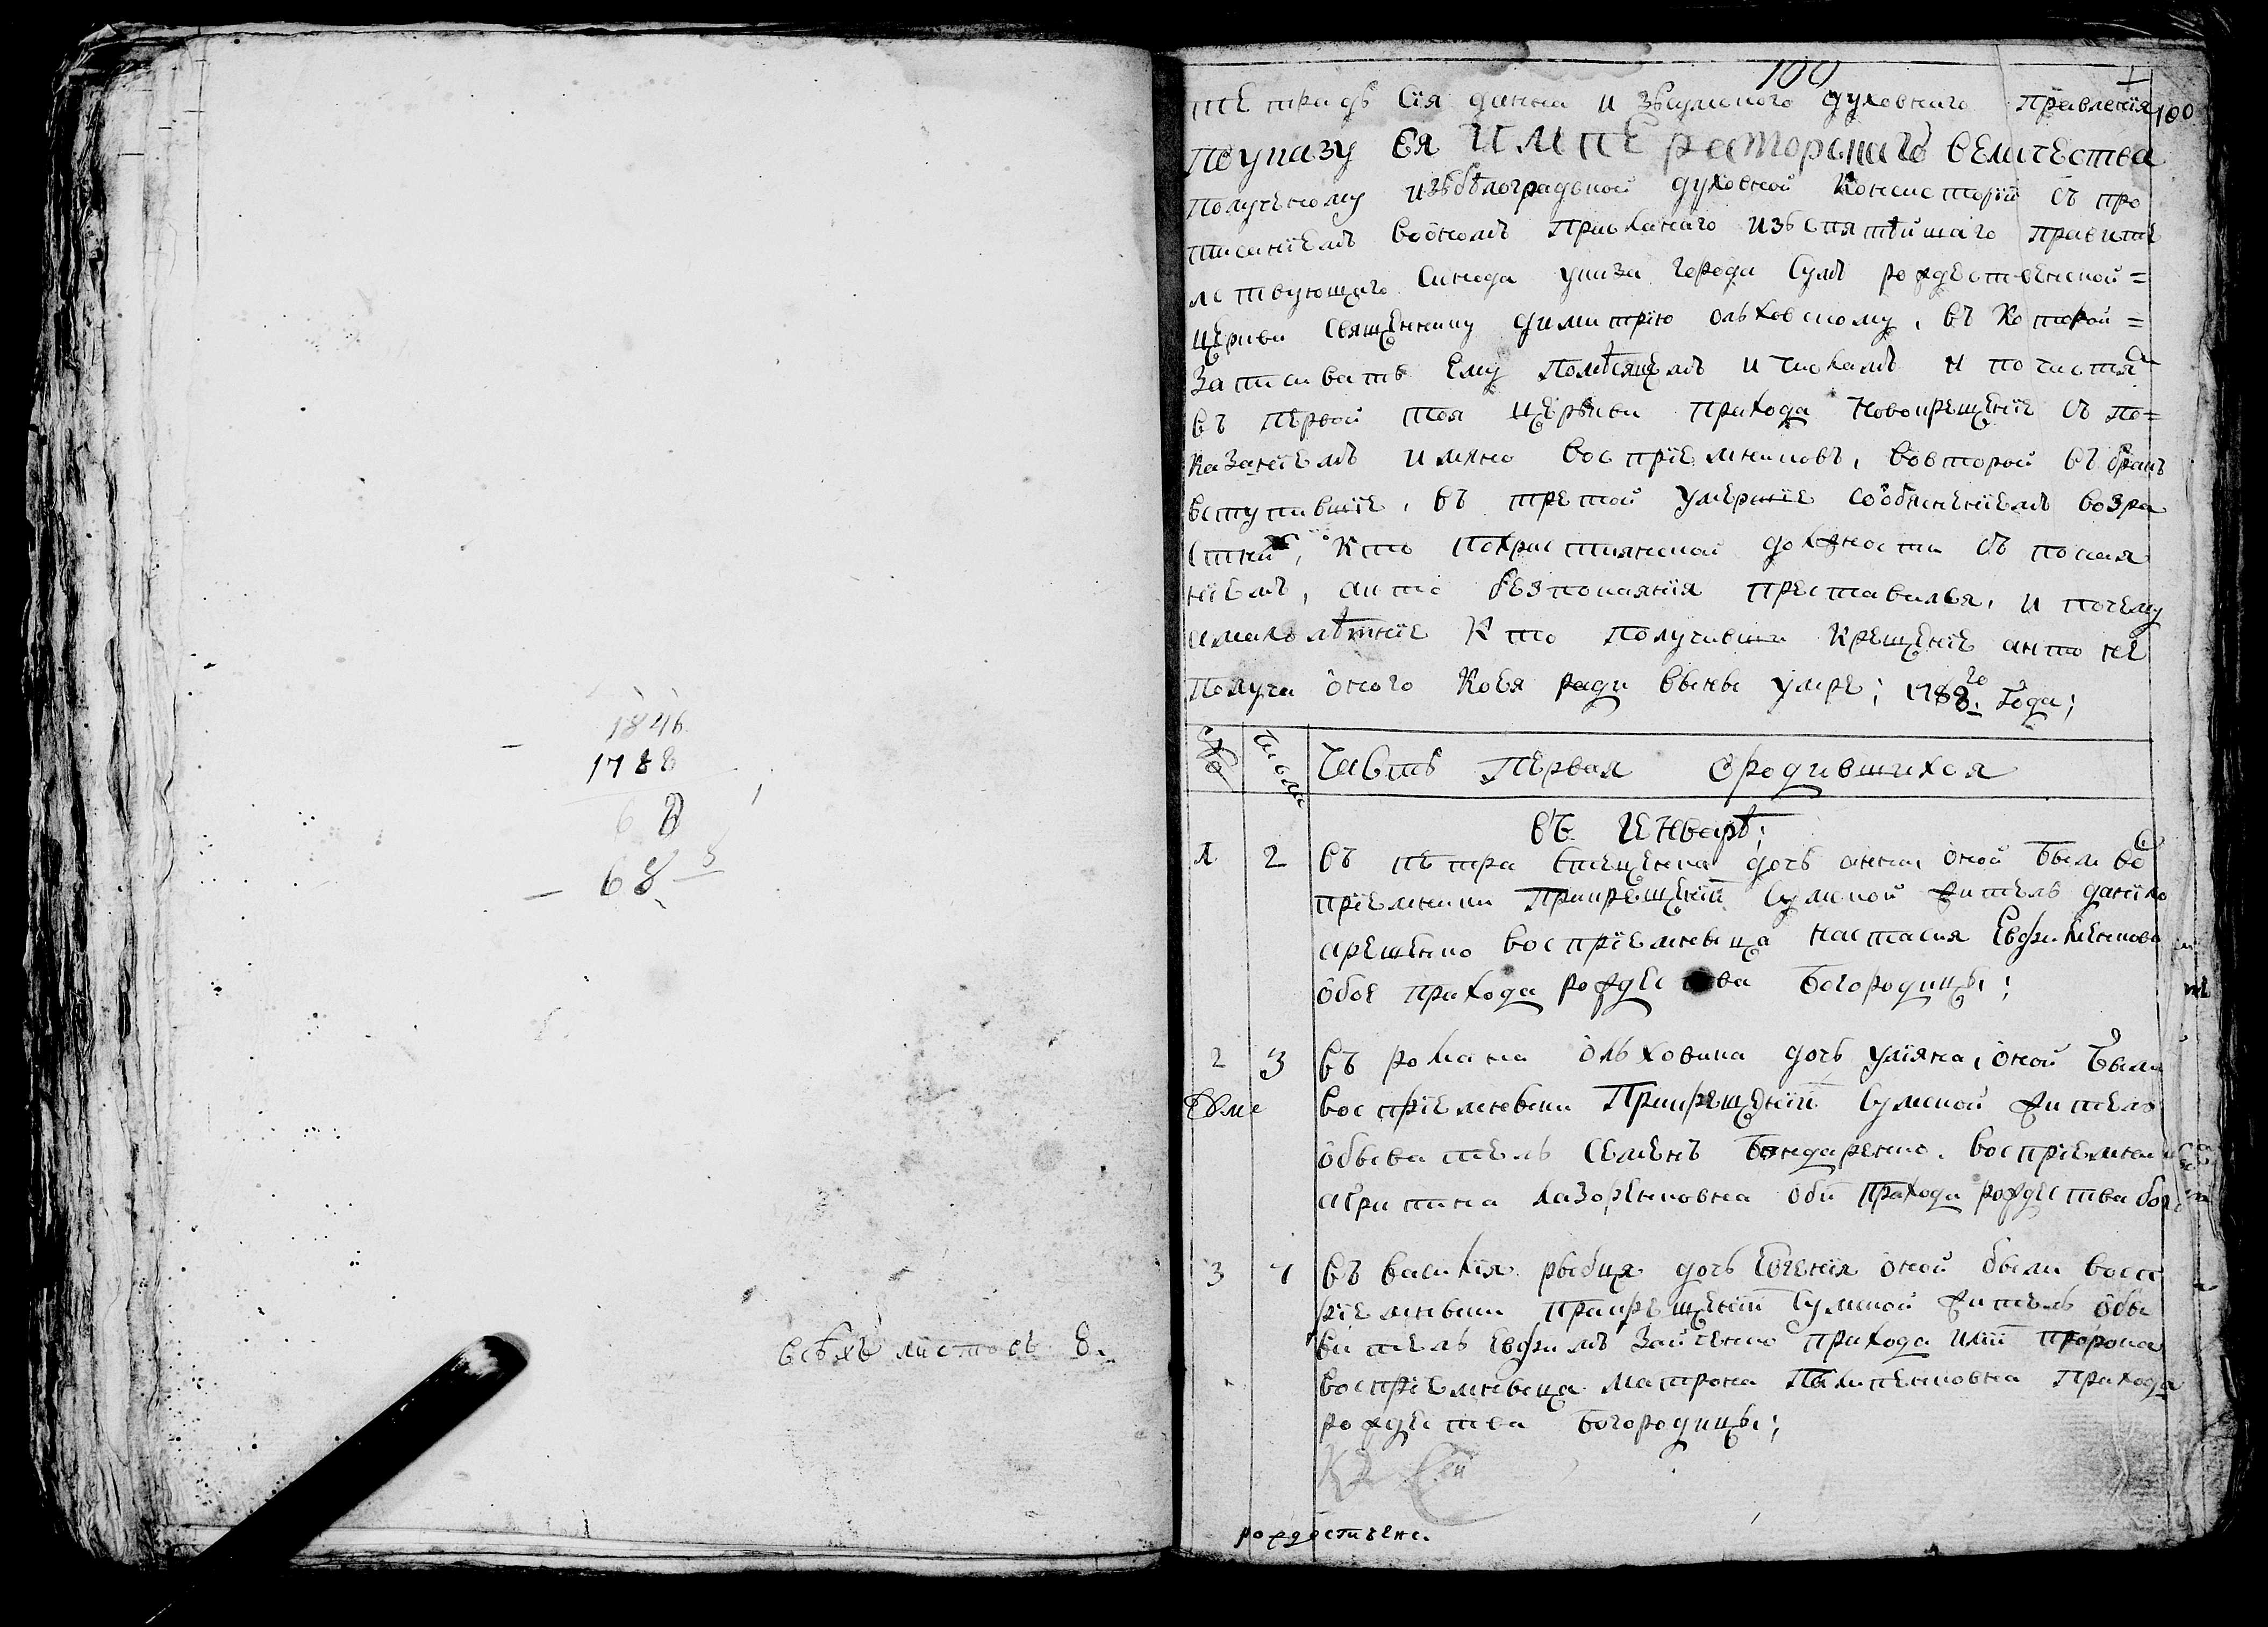 1846
1788
68
68
всѣхъ листовъ 8.
100
тетрадь сія данна изъ сумского духовнаго правленія 100
По указу Ея ИМПЕраторскаго величества
полученному изъ бѣлоградской духовной консисторіи съ про
писаніемъ во ономъ присланаго изъ святѣйшаго правите
лствующаго синода указа города сумъ рождественской =
церкви священнику димитрію ольховскому, въ которой =
записивать ему помѣсяцемъ и числамъ и по частямъ
въ первой тоя церькви прихода новокрещеніе съ по=
казаніемъ имяно воспріемниковъ, вовторой въ бракъ
вступившіе, въ третой умершіе собясненіемъ возра
стній, кто похристиянской должности съ покая
ніемъ, а кто безпокаянія преставился, и почему
ималолѣтніе кто получивши крещеніе а кто не
получа оного коея ради выны умре; 1788го года;
число
Часть первая о родившихся
въ Генварѣ;
1 2 въ петра дочь анна, оной были вос
пріемники прикрещеніи сумской житель даніло
воспріемныца настасия Евфименкова
обое прихода рождества богородицы;
2 3 въ романа ольховика дочь уліяна, оной были
воспріемныки Прикрещеніи сумской житель
обыватель семенъ бондаренко. воспріемни
агрипина лазоренковна обй прихода рождества бого
3 7 въ василія рыбця дочь Евгенія оной были восп
ріемныки прикрещеніи сумской житель обы
ватель евфимъ зайченко прихода иліи пророка
воспріемныца матрона прихода
рождества богородицы;
рождественс.